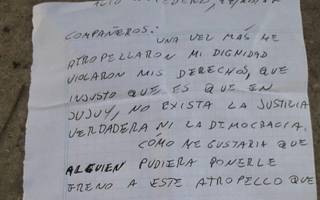 COMPAÑEROS:
UNA VEZ MÁS ME
ATROPELLARON MI DIGNIDAD
VIOLARON MIS DERECHOS, QUE
INJUSTO QUE ES QUE EN
JUJUY, NO EXISTA LA JUSTICIA
VERDADERA NI LA DEMOCRACIA.
CÓMO ME GUSTARIA QUE
ALGUIEN PUDIERA PONERLE
FRENO A ESTE ATROPELLO QUE